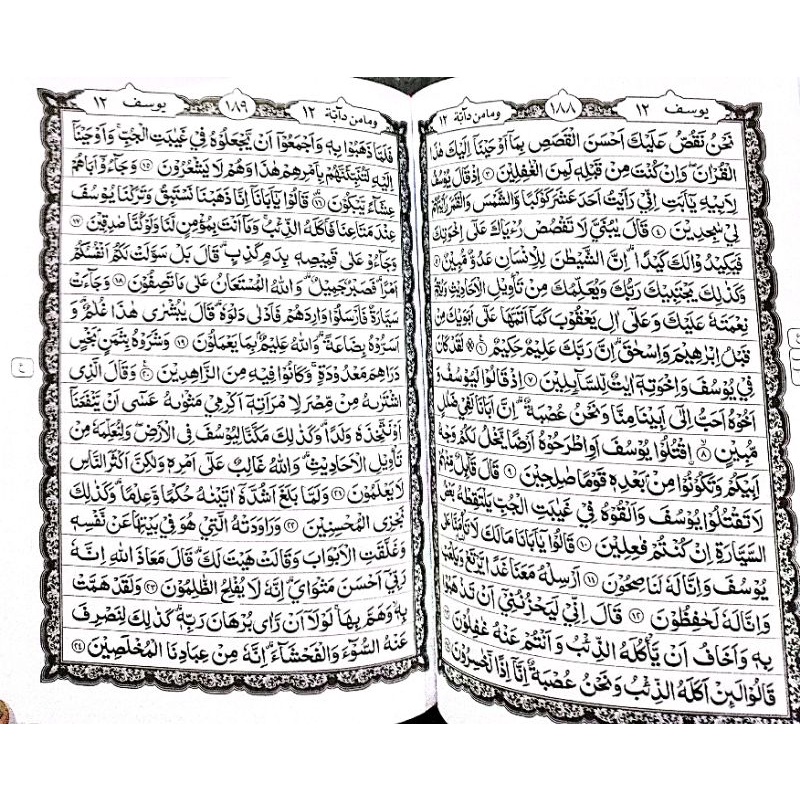 يوسف ١٢ ١٨٨ ومامن دآبة ١٢
نَحْنُ نَقُصُّ عَلَيْكَ اَحْسَنَ الْقَصَصِ بِمَآ اَوْحَيْنَآ اِلَيْكَ هٰذَا
الْقُرْاٰنَ وَاِنْ كُنْتَ مِنْ قَبْلِهٖ لَمِنَ الْغٰفِلِيْنَ ٣ اِذْ قَالَ يُوْسُفُ
لِاَبِيْهِ يٰٓاَبَتِ اِنِّيْ رَاَيْتُ اَحَدَ عَشَرَ كَوْكَبًا وَّالشَّمْسَ وَالْقَمَرَ رَاَيْتُهُمْ
لِيْ سٰجِدِيْنَ ٤ قَالَ يٰبُنَيَّ لَا تَقْصُصْ رُءْيَاكَ عَلٰٓى اِخْوَتِكَ
فَيَكِيْدُوْا لَكَ كَيْدًا اِنَّ الشَّيْطٰنَ لِلْاِنْسَانِ عَدُوٌّ مُّبِيْنٌ ٥
وَكَذٰلِكَ يَجْتَبِيْكَ رَبُّكَ وَيُعَلِّمُكَ مِنْ تَأْوِيْلِ الْاَحَادِيْثِ وَيُتِمُّ
نِعْمَتَهٗ عَلَيْكَ وَعَلٰٓى اٰلِ يَعْقُوْبَ كَمَآ اَتَمَّهَا عَلٰٓى اَبَوَيْكَ مِنْ
قَبْلُ اِبْرٰهِيْمَ وَاِسْحٰقَ اِنَّ رَبَّكَ عَلِيْمٌ حَكِيْمٌ ٦ لَقَدْ كَانَ
فِيْ يُوْسُفَ وَاِخْوَتِهٖٓ اٰيٰتٌ لِّلسَّآئِلِيْنَ ٧ اِذْ قَالُوْا لَيُوْسُفُ وَ
اَخُوْهُ اَحَبُّ اِلٰٓى اَبِيْنَا مِنَّا وَنَحْنُ عُصْبَةٌ اِنَّ اَبَانَا لَفِيْ ضَلٰلٍ
مُّبِيْنٍ ٨ اقْتُلُوْا يُوْسُفَ اَوِ اطْرَحُوْهُ اَرْضًا يَّخْلُ لَكُمْ وَجْهُ
اَبِيْكُمْ وَتَكُوْنُوْا مِنْ بَعْدِهٖ قَوْمًا صٰلِحِيْنَ ٩ قَالَ قَآئِلٌ مِّنْهُمْ
لَا تَقْتُلُوْا يُوْسُفَ وَاَلْقُوْهُ فِيْ غَيٰبَتِ الْجُبِّ يَلْتَقِطْهُ بَعْضُ
السَّيَّارَةِ اِنْ كُنْتُمْ فٰعِلِيْنَ ١٠ قَالُوْا يٰٓاَبَانَا مَالَكَ لَا تَأْمَنَّا عَلٰى
يُوْسُفَ وَاِنَّا لَهٗ لَنَاصِحُوْنَ ١١ اَرْسِلْهُ مَعَنَا غَدًا يَّرْتَعْ وَيَلْعَبْ
وَاِنَّا لَهٗ لَحٰفِظُوْنَ ١٢ قَالَ اِنِّيْ لَيَحْزُنُنِيْٓ اَنْ تَذْهَبُوْا
بِهٖ وَاَخَافُ اَنْ يَّأْكُلَهُ الذِّئْبُ وَاَنْتُمْ عَنْهُ غٰفِلُوْنَ ١٣
قَالُوْا لَئِنْ اَكَلَهُ الذِّئْبُ وَنَحْنُ عُصْبَةٌ اِنَّآ اِذًا لَّخٰسِرُوْنَ
ومامن دآبة ١٢ ١٨٩ يوسف ١٢
فَلَمَّا ذَهَبُوْا بِهٖ وَاَجْمَعُوْٓا اَنْ يَّجْعَلُوْهُ فِيْ غَيٰبَتِ الْجُبِّ وَاَوْحَيْنَآ
اِلَيْهِ لَتُنَبِّئَنَّهُمْ بِاَمْرِهِمْ هٰذَا وَهُمْ لَا يَشْعُرُوْنَ ١٥ وَجَآءُوْٓ اَبَاهُمْ
عِشَآءً يَّبْكُوْنَ ١٦ قَالُوْا يٰٓاَبَانَآ اِنَّا ذَهَبْنَا نَسْتَبِقُ وَتَرَكْنَا يُوْسُفَ
عِنْدَ مَتَاعِنَا فَاَكَلَهُ الذِّئْبُ وَمَآ اَنْتَ بِمُؤْمِنٍ لَّنَا وَلَوْ كُنَّا صٰدِقِيْنَ ١٧
وَجَآءُوْ عَلٰى قَمِيْصِهٖ بِدَمٍ كَذِبٍ قَالَ بَلْ سَوَّلَتْ لَكُمْ اَنْفُسُكُمْ
اَمْرًا فَصَبْرٌ جَمِيْلٌ وَاللّٰهُ الْمُسْتَعَانُ عَلٰى مَا تَصِفُوْنَ ١٨ وَجَآءَتْ
سَيَّارَةٌ فَاَرْسَلُوْا وَارِدَهُمْ فَاَدْلٰى دَلْوَهٗ قَالَ يٰبُشْرٰى هٰذَا غُلٰمٌ وَ
اَسَرُّوْهُ بِضَاعَةً وَاللّٰهُ عَلِيْمٌ بِمَا يَعْمَلُوْنَ ١٩ وَشَرَوْهُ بِثَمَنٍ بَخْسٍ
دَرَاهِمَ مَعْدُوْدَةٍ وَكَانُوْا فِيْهِ مِنَ الزّٰهِدِيْنَ ٢٠ وَقَالَ الَّذِى
اشْتَرٰىهُ مِنْ مِّصْرَ لِامْرَاَتِهٖٓ اَكْرِمِيْ مَثْوٰىهُ عَسٰٓى اَنْ يَّنْفَعَنَآ
اَوْ نَتَّخِذَهٗ وَلَدًا وَكَذٰلِكَ مَكَّنَّا لِيُوْسُفَ فِى الْاَرْضِ وَلِنُعَلِّمَهٗ مِنْ
تَأْوِيْلِ الْاَحَادِيْثِ وَاللّٰهُ غَالِبٌ عَلٰٓى اَمْرِهٖ وَلٰكِنَّ اَكْثَرَ النَّاسِ
لَا يَعْلَمُوْنَ ٢١ وَلَمَّا بَلَغَ اَشُدَّهٗٓ اٰتَيْنٰهُ حُكْمًا وَّعِلْمًا وَكَذٰلِكَ
نَجْزِى الْمُحْسِنِيْنَ ٢٢ وَرَاوَدَتْهُ الَّتِيْ هُوَ فِيْ بَيْتِهَا عَنْ نَّفْسِهٖ
وَغَلَّقَتِ الْاَبْوَابَ وَقَالَتْ هَيْتَ لَكَ قَالَ مَعَاذَ اللّٰهِ اِنَّهٗ
رَبِّيْٓ اَحْسَنَ مَثْوَايَ اِنَّهٗ لَا يُفْلِحُ الظّٰلِمُوْنَ ٢٣ وَلَقَدْ هَمَّتْ
بِهٖ وَهَمَّ بِهَا لَوْلَآ اَنْ رَّاٰ بُرْهَانَ رَبِّهٖ كَذٰلِكَ لِنَصْرِفَ
عَنْهُ السُّوْٓءَ وَالْفَحْشَآءَ اِنَّهٗ مِنْ عِبَادِنَا الْمُخْلَصِيْنَ ٢٤
ع